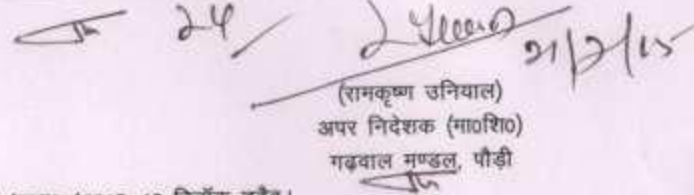 24
21/2/15
(रामकृष्ण उनियाल)
अपर निदेशक (मा०शि०)
गढ़वाल मण्डल, पौड़ी